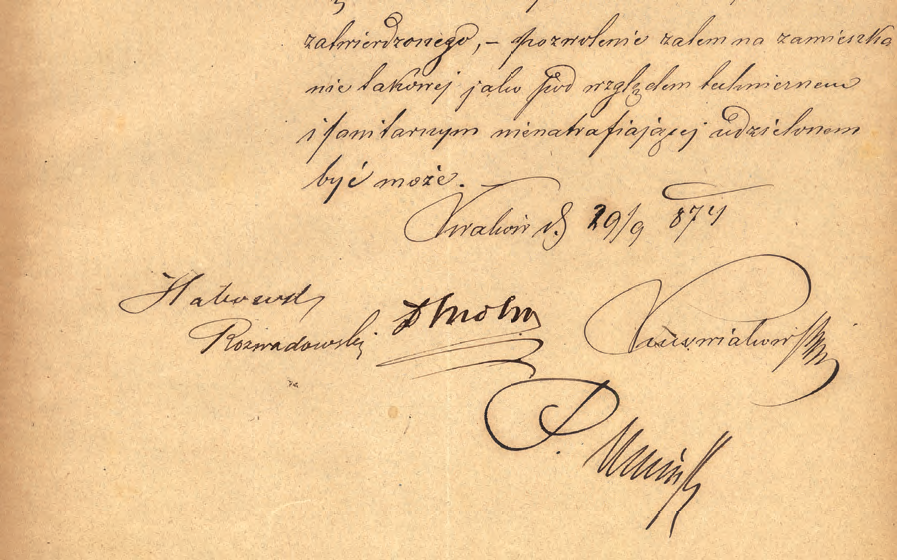 zatwierdzonego, – pozwolenie zatem na zamieszka
nie takowej jako pod względem technicznem
i sanitarnym nienatrafiającej udzielonem
być może.
Kraków d. 29/9 874
Rozwadowski
P. Umiński